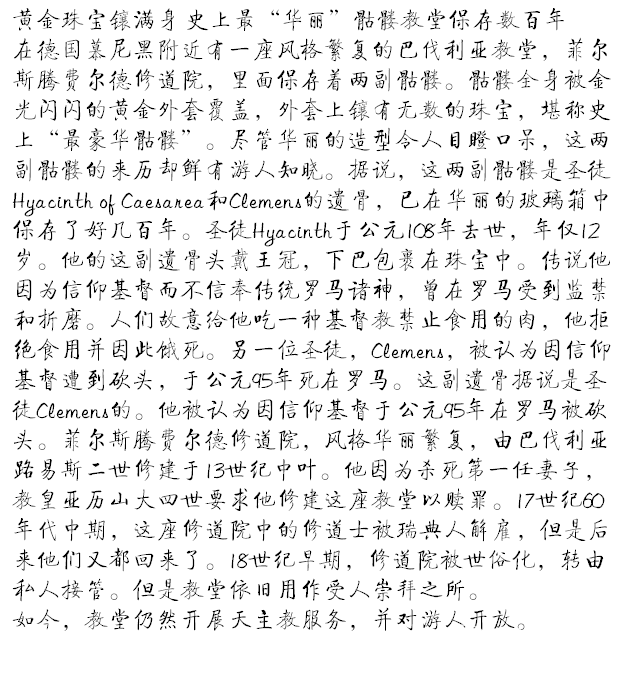 黄金珠宝镶满身史上最“华丽”骷髅教堂保存数百年
在德国慕尼黑附近有一座风格繁复的巴伐利亚教堂，菲尔
斯腾费尔德修道院，里面保存着两副骷髅。骷髅全身被金
光闪闪的黄金外套覆盖，外套上镶有无数的珠宝，堪称史
上“最豪华骷髅”。尽管华丽的造型令人目瞪口呆，这两
副骷髅的来历却鲜有游人知晓。据说，这两副骷髅是圣徒
Hyacinth of Caesarea和Clemens的遗骨，已在华丽的玻璃箱中
保存了好几百年。圣徒Hyacinth于公元108年去世，年仅12
岁。他的这副遗骨头戴王冠，下巴包裹在珠宝中。传说他
因为信仰基督而不信奉传统罗马诸神，曾在罗马受到监禁
和折磨。人们故意给他吃一种基督教禁止食用的肉，他拒
绝食用并因此饿死。另一位圣徒，Clemens，被认为因信仰
基督遭到砍头，于公元95年死在罗马。这副遗骨据说是圣
徒Clemens的。他被认为因信仰基督于公元95年在罗马被砍
头。菲尔斯腾费尔德修道院，风格华丽繁复，由巴伐利亚
路易斯二世修建于13世纪中叶。他因为杀死第一任妻子，
教皇亚历山大四世要求他修建这座教堂以赎罪。17世纪60
年代中期，这座修道院中的修道士被瑞典人解雇，但是后
来他们又都回来了。18世纪早期，修道院被世俗化，转由
私人接管。但是教堂依旧用作受人崇拜之所。
如今，教堂仍然开展天主教服务，并对游人开放。